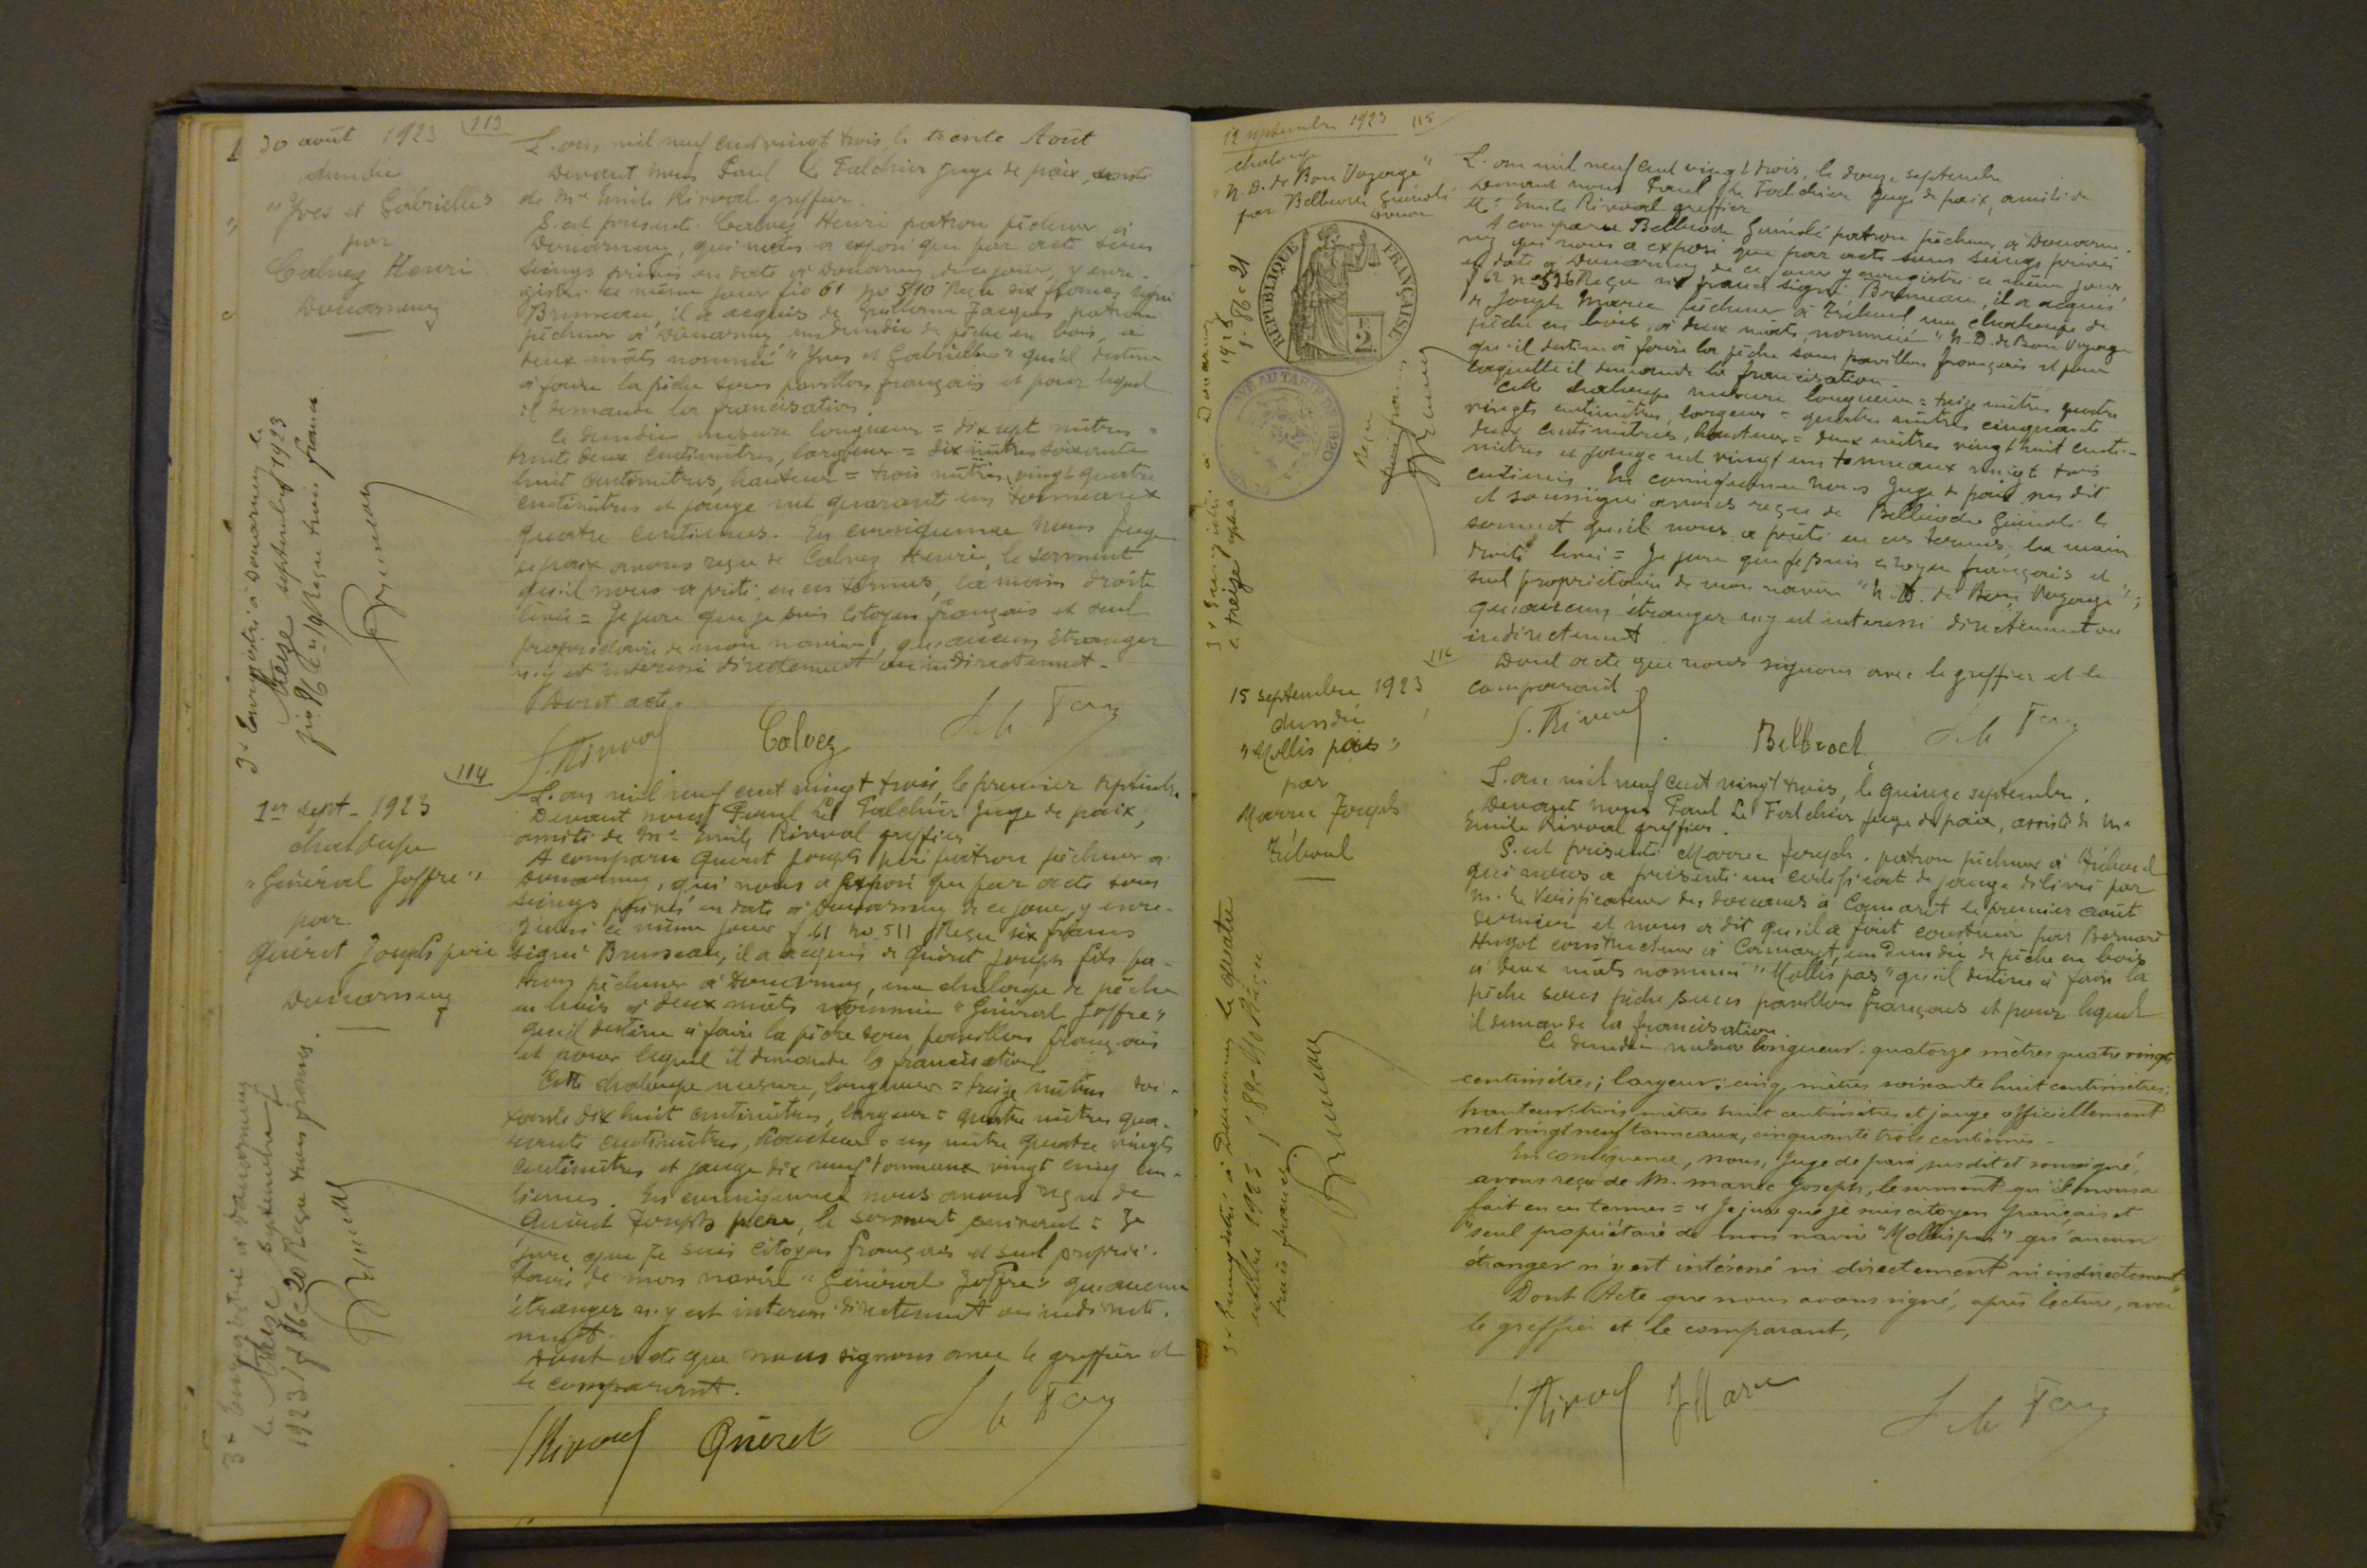 30 août 1923
113
dundée
"Yves et Gabrielle"
par
Calvez Henri
Douarnenez
L'an mil neuf cent vingt trois, le trente Août
Devant nous Paul Le Falchier juge de paix, assisté
de Me Emile Rivoal greffier.
S'est présenté Calvez Henri patron pêcheur à
Douarnenez, qui nous a exposé que par acte sous
seings privés en date à Douarnenez, de ce jour, y enre-
gistré ce même jour fio 61 no 510 Reçu six francs signé
Bruneau, il a acquis de Guillerme Jacques patron
pêcheur à Douarnenez un dundée de pêche en bois, à
deux mâts nommé "Yves et Gabrielle" qu'il destine
à faire la pêche sous pavillon français et pour lequel
il demande la francisation.
Ce dundée mesure longueur = dix sept mètres
trente deux centimètres, largeur = six mètres soixante
huit centimètres, hauteur = trois mètres vingt quatre
centimètres et jauge net quarante un tonneaux
quatre centièmes. En conséquence nous Juge
de paix avons reçu de Calvez Henri, le serment
qu'il nous a prêté en ces termes, la main droite
levée = Je jure que je suis citoyen français et seul
propriétaire de mon navire, qu'aucun étranger
n'y est intéressé directement ou indirectement.
Dont acte.
E. Rivoal Calvez P. Le Fal
3f Enregistré à Douarnenez le
treize septembre 1923
fio 86 c = 19 Reçu trois francs
Bruneau
114
1er sept - 1923
chaloupe
"Général Joffre"
par
Quéret Joseph père
Douarnenez
L'an mil neuf cent vingt trois, le premier septembre
Devant nous Paul Le Falchier Juge de paix,
assisté de Me Emile Rivoal greffier
A comparu Quéret Joseph père patron pêcheur à
Douarnenez, qui nous a exposé que par acte sous
seings privés en date à Douarnenez de ce jour, y enre-
gistré ce même jour f 61 no 511 Reçu six francs
signé Bruneau, il a acquis de Quéret Joseph fils pa-
tron pêcheur à Douarnenez, une chaloupe de pêche
en bois à deux mâts nommée "Général Joffre"
qu'il destine à faire la pêche sous pavillon français
et pour lequel il demande la francisation
Cette chaloupe mesure, longueur = treize mètres soi-
xante dix huit centimètres, largeur = quatre mètres qua-
rante centimètres, hauteur = un mètre quatre vingts
centimètres et jauge dix neuf tonneaux vingt cinq cen-
tièmes. En conséquence nous avons reçu de
Quéret Joseph père, le serment suivant = Je
jure que je suis citoyen français et seul proprié-
taire de mon navire "Général Joffre" qu'aucun
étranger n'y est intéressé directement ou indirecte-
ment.
Dont acte que nous signons avec le greffier et
le comparant.
E. Rivoal Quéret P. Le Fal
3f Enregistré à Douarnenez
le treize septembre
1923 / f 86 c 20 Reçu trois francs.
Bruneau
12 septembre 1923 115
chaloupe
"N.D. de Bon Voyage"
par Belbeoch Guénolé
Douar
REPUBLIQUE FRANÇAISE
2
TARIF DE 1920
L'an mil neuf cent vingt trois, le douze septembre
Devant nous Paul Le Falchier Juge de paix, assisté de
Me Emile Rivoal greffier
A comparu Belbeoch Guénolé patron pêcheur à Douarne-
nez qui nous a exposé que par acte sous seings privés
en date à Douarnenez de ce jour y enregistré ce même jour
f 62 no 526 Reçu six francs signé Bruneau, il a acquis
de Joseph Marec pêcheur à Tréboul une chaloupe de
pêche en bois, à deux mâts, nommée "N.D. de Bon Voyage"
qu'il destine à faire la pêche sous pavillon français et pour
laquelle il demande la francisation.
Cette chaloupe mesure longueur = treize mètres quatre
vingts centimètres, largeur = quatre mètres cinquante
deux centimètres, hauteur = deux mètres vingt huit centi-
mètres et jauge net vingt un tonneaux vingt trois
centièmes. En conséquence nous Juge de paix sus dit
et soussigné avons reçu de Belbeoch Guénolé le
serment qu'il nous a prêté en ces termes, la main
droite levée = Je jure que je suis citoyen français et
seul propriétaire de mon navire "N.D. de Bon Voyage",
qu'aucun étranger n'y est intéressé directement ou
indirectement.
Dont acte que nous signons avec le greffier et le
comparant.
E. Rivoal Belbeoch P. Le Fal
3f Enregistré à Douarnenez
le treize septembre 1923
f. 86 c 21
Reçu
trois francs
Bruneau
116
15 septembre 1923
dundée
"Mollis pas"
par
Marec Joseph
Tréboul
L'an mil neuf cent vingt trois, le quinze septembre.
Devant nous Paul Le Falchier juge de paix, assisté de Me
Emile Rivoal greffier.
S'est présenté Marec Joseph, patron pêcheur à Tréboul
qui nous a présenté un certificat de jauge délivré par
M. le Vérificateur des douanes à Camaret le premier août
dernier et nous a dit qu'il a fait construire par Bernard
Hugot constructeur à Camaret, un dundée de pêche en bois
à deux mâts nommé "Mollis pas" qu'il destine à faire la
pêche sous pêche sous pavillon français et pour lequel
il demande la francisation.
Ce dundée mesure longueur: quatorze mètres quatre vingts
centimètres; largeur: cinq mètres soixante huit centimètres;
hauteur: trois mètres huit centimètres et jauge officiellement
net vingt neuf tonneaux, cinquante trois centièmes.
En conséquence, nous, Juge de paix susdit et soussigné,
avons reçu de M. Marec Joseph, le serment qu'il nous a
fait en ces termes = "Je jure que je suis citoyen français et
"seul propriétaire de mon navire "Mollis pas" qu'aucun
étranger n'y est intéressé ni directement ni indirectement"
Dont Acte que nous avons signé, après lecture, avec
le greffier et le comparant,
E. Rivoal J Marec P. Le Fal
3f Enregistré à Douarnenez le quatre
octobre 1923 f 89 c Reçu
trois francs
Bruneau